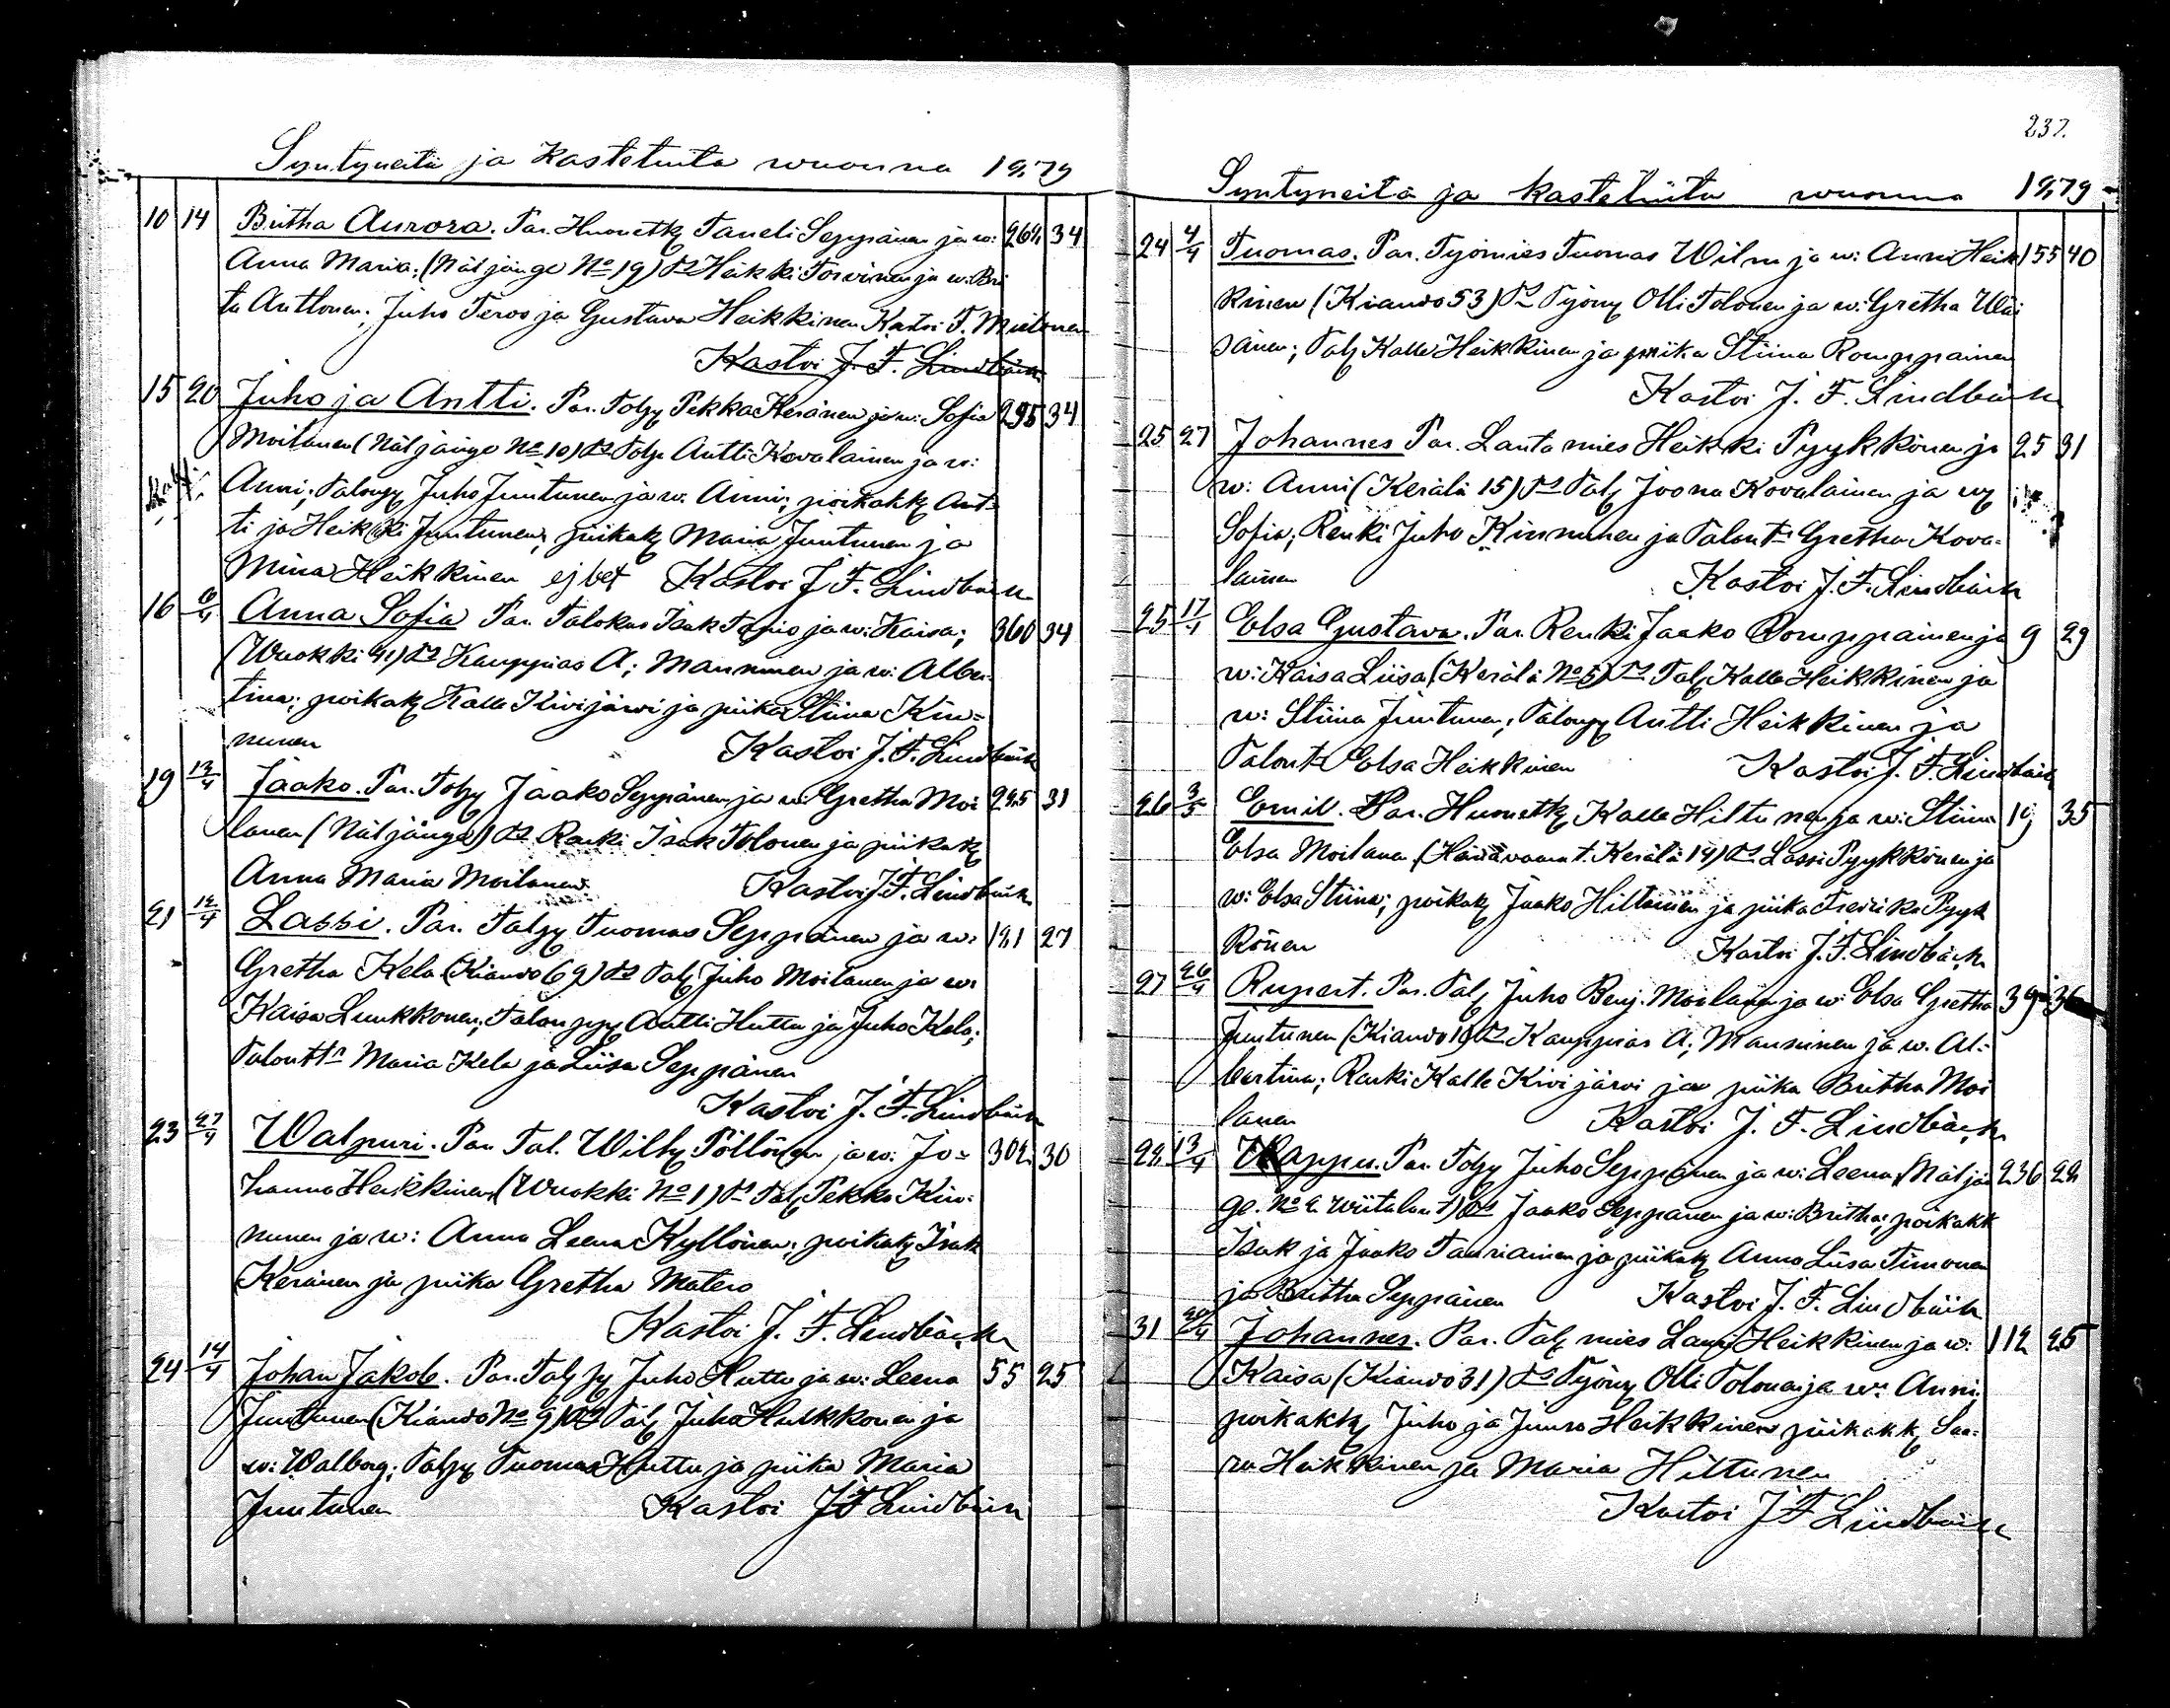 Syntyneitä ja Kastetuita wuonna 1879
10 14 Britha Aurora. Par. Huonetk Taneli Seppänen ja w: 268 34
Anna Maria; (Näljänge No 19) Ts Heikki Torvinen ja w. Bri
ta Anttonen; Juho Tervo ja Gustava Heikkinen Kastoi T. Miettinen
Kastoi J. F. Lindbäck
15 20 Juho ja Antti. Par. Talp Pekka Keränen ja w: Sofia 295 34
Moilanen (Näljänge No 10) Ts Talp Antti Kovalainen ja w:
Anni; Talonp Juho Juntunen ja w: Anni; poikakk Ant-
ti ja Heikki Juntunen, piikak Maria Juntunen ja
Mina Heikkinen ej bet Kastoi J. F. Lindbäck
16 6/4 Anna Sofia Par. Talokas Isak Tapio ja w: Kaisa; 360 34
(Wuokki 41) Ts Kauppias A; Manninen ja w: Alber-
tina; poikak Kalle Kivijärwi ja piika Stiina Kin-
nunen Kastoi J. F. Lindbäck
19 13/4 Jaako. Par. Talp Jaako Seppänen ja w: Gretha Moi 285 31
lanen (Näljänge) Ts Renki Isak Tolonen ja piikak
Anna Maria Moilanen Kastoi J. F. Lindbäck
21 12/4 Lassi. Par. Talp Tuomas Seppänen ja w: 181 27
Gretha Kela (Kiando 69) Ts Talp Juho Moilanen ja w:
Kaisa Luukkonen; Talonpp Antti Huttu ja Juho Kela;
Talontt Maria Kela ja Liisa Seppänen
Kastoi J. F. Lindbäck
23 27/4 Walpuri. Par. Tal. Wilh Pöllönen ja w: Jo- 302 30
hanna Heikkinen (Wuokki No 1) Ts Talp Pekka Kin-
nunen ja w: Anna Leena Kyllönen; poikak Isak
Keränen ja piika Gretha Matero
Kastoi J. F. Lindbäck
24 14/4 Johan Jakob. Par. Talp Juho Huttu ja w: Leena 55 25
Juntunen (Kiando No 9) Ts Talp Juho Hulkkonen ja
w: Walborg; Talp Tuomas Huttu ja piika Maria
Juntunen Kastoi J F Lindbäck
237.
Syntyneitä ja kastetuita wuonna 1879
24 4/4 Tuomas. Par. Työmies Tuomas Wilm ja w: Anni Heik 155 40
kinen (Kiando 53) Ts Työm Olli Tolonen ja w: Gretha Wäi
sänen; Talp Kalle Heikkinen ja piika Stiina Romppainen
Kastoi J. F. Lindbäck
25 27 Johannes Par. Lautamies Heikki Pyykkönen ja 25 31
w: Anni (Kerälä 15) Ts Talp Joona Kovalainen ja w
Sofia; Renki Juho Kinnunen ja Talont Gretha Kova-
lainen Kastoi J. F. Lindbäck
25 17/4 Elsa Gustava. Par. Renki Jaako Romppainen ja 9 29
w: Kaisa Liisa (Kerälä No 5) Ts Talp Kalle Heikkinen ja
w: Stiina Juntunen; Talonp Antti Heikkinen ja
Talont Elsa Heikkinen Kastoi J. F. Lindbäck
26 3/5 Emil. Par. Huonetk Kalle Hiltunen ja w: Stiina 19 35
Elsa Moilana (Kerälä 14) Ts Lassi Pyykkönen ja
w: Elsa Stiina; poikak Jaako Hiltunen ja piika Fredrika Pyyk
könen Kastoi J. F. Lindbäck
27 26/4 Rupert. Par. Talp Juho Benj. Moilanen ja w: Elsa Gretha 39 36
Juntunen (Kiando 1) Ts Kauppias A; Manninen ja w. Al-
bertina; Renki Kalle Kivijärvi ja piika Britha Moi
lanen Kastoi J. F. Lindbäck
28 13/4 Wappu. Par. Talp Juho Seppänen ja w: Leena (Näljän 236 28
ge. No 2 Wiitala) Ts Jaako Seppänen ja w: Britha; poikakk
Isak ja Jaako Tauriainen ja piikak Anna Liisa Timonen
ja Britha Seppänen Kastoi J. F. Lindbäck
31 20/4 Johannes. Par. Talp mies Lauri Heikkinen ja w: 112 25
Kaisa (Kiando 31) Ts Työm Olli Tolonen ja w: Anni
poikakk Juho ja Junro Heikkinen piikakk Saa-
ra Heikkinen ja Maria Hiltunen
Kastoi J F Lindbäck